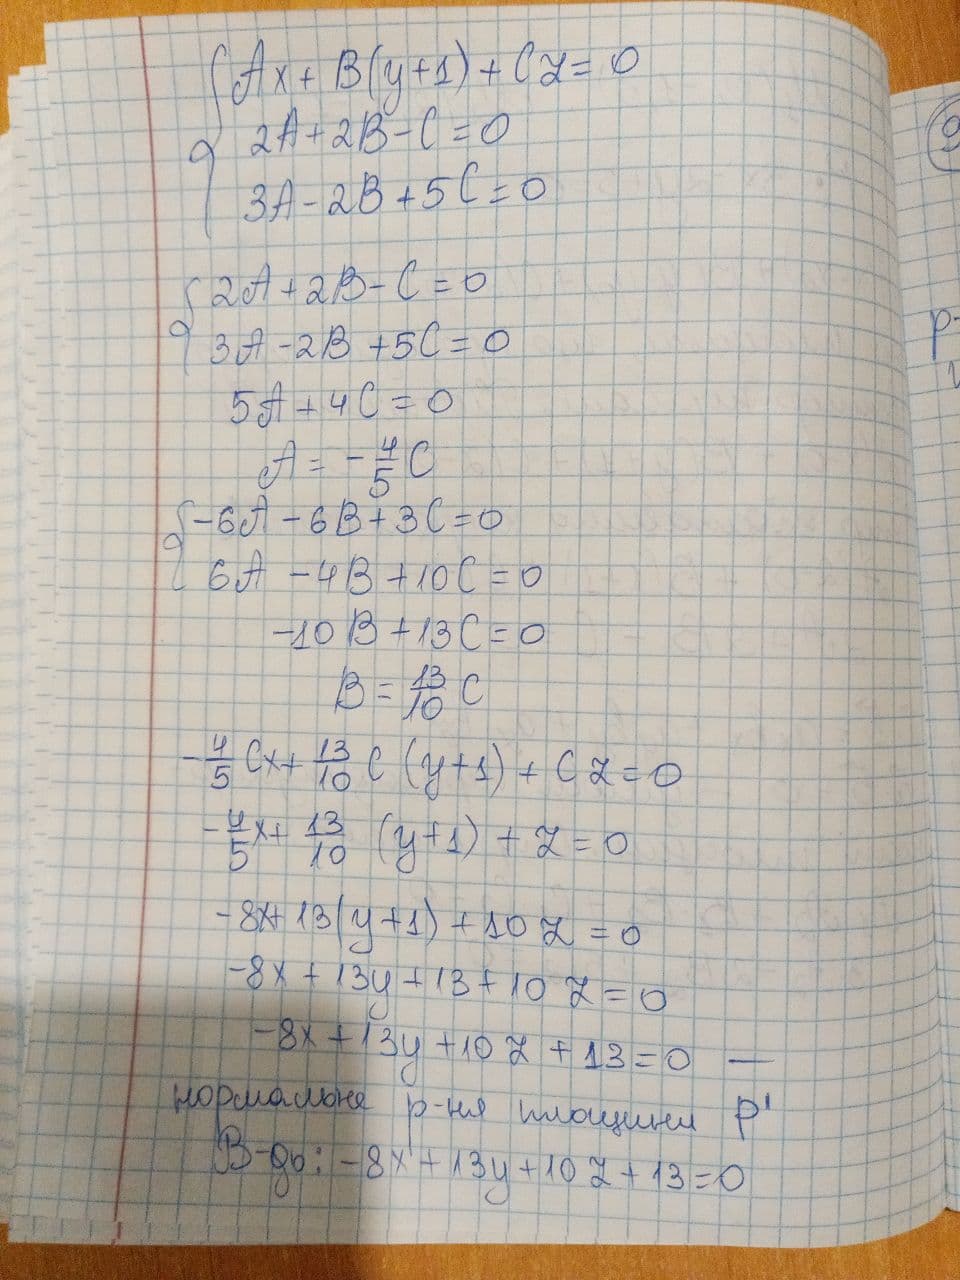 Ax + B(y+1) + Cz = 0
2A + 2B - C = 0
3A - 2B + 5C = 0
2A + 2B - C = 0
3A - 2B + 5C = 0
5A + 4C = 0
A = -4/5 C
-6A - 6B + 3C = 0
6A - 4B + 10C = 0
-10B + 13C = 0
B = 13/10 C
-4/5 Cx + 13/10 C (y+1) + Cz = 0
-4/5 x + 13/10 (y+1) + z = 0
-8x + 13(y+1) + 10z = 0
-8x + 13y + 13 + 10z = 0
-8x + 13y + 10z + 13 = 0 —
нормальне р-ня площини P'
В-дь: -8x + 13y + 10z + 13 = 0
9
р-